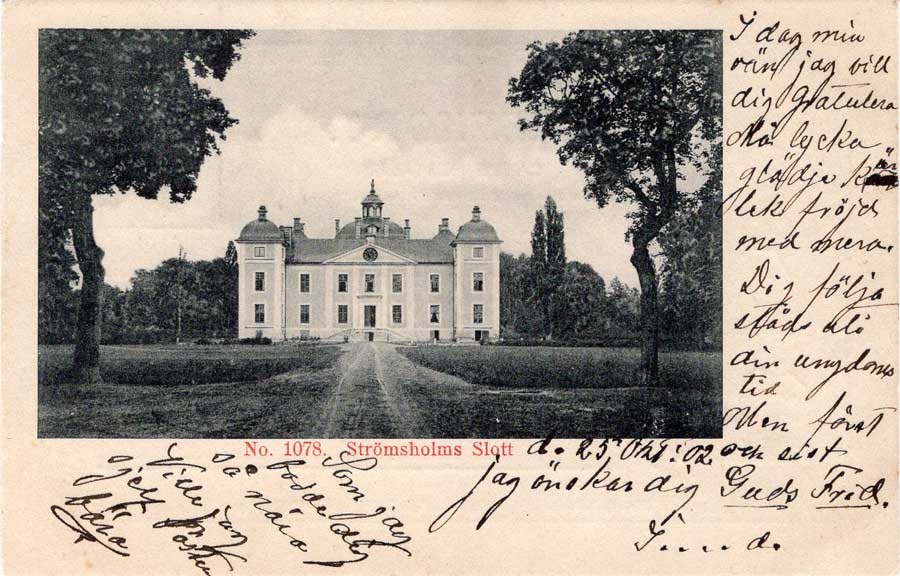 I dag min
vän jag vill
dig Gratulera
Må lycka
glädje kär
lek fröjd
med mera.
Dig följa
städs uti
din ungdoms
tid
Men först
och sist
jag önskar dig Guds Frid.
No. 1078. Strömsholms Slott
d. 25 02
Som jag
bodde dig
så nära
Ville jag
ej
bära